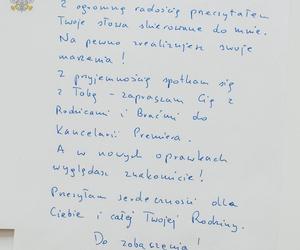 z ogromną radością przeczytałem
Twoje słowa skierowane do mnie.
Na pewno zrealizujesz swoje
marzenia!
Z przyjemnością spotkam się
z Tobą - zapraszam Cię z
Rodzicami i Braćmi do
Kancelarii Premiera.
A w nowych oprawkach
wyglądasz znakomicie!
Przesyłam serdeczności dla
Ciebie i całej Twojej Rodziny.
Do zobaczenia!